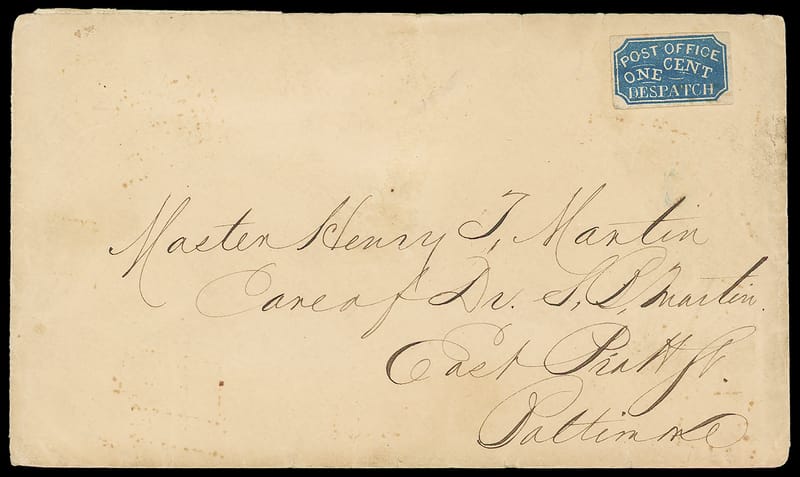 POST OFFICE
ONE CENT
DESPATCH
Master Henry T, Martin
Care of Dr. S, B, Martin.
East Pratt St.
Baltimore